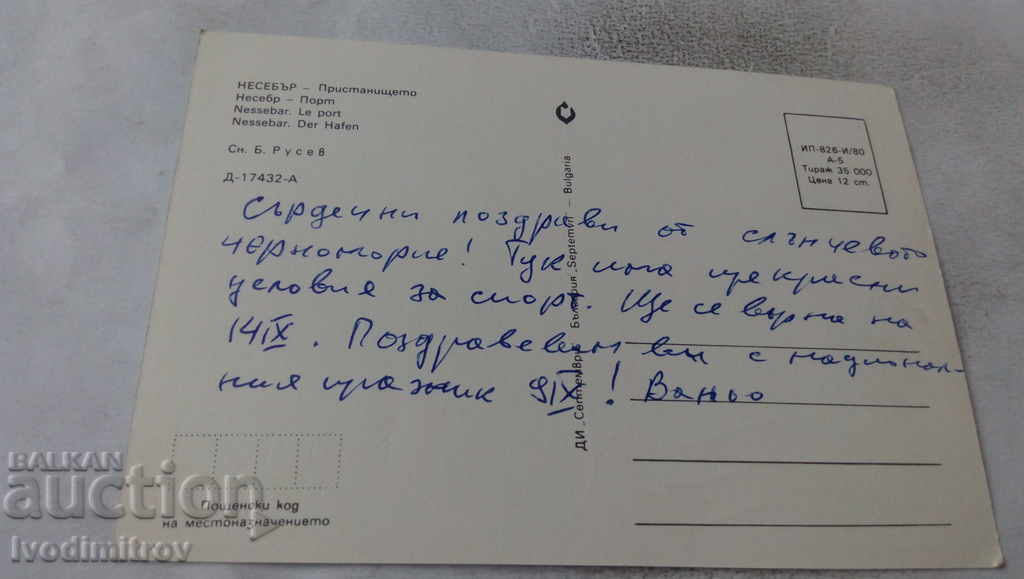 НЕСЕБЪР – Пристанището
Несебр – Порт
Nessebar. Le port
Nessebar. Der Hafen
Сн. Б. Русев
Д-17432-А
ИП-826-И/80
А-5
Тираж 35 000
Цена 12 ст.
Сърдечни поздрави от слънчевото
черноморие! Тук има прекрасни
условия за спорт. Ще се върна на
14 IX. Поздравевам ви с национал-
ния празник 9 IX! Ваньо
ДИ „Септември" България „Septemvri" – Bulgaria
Пощенски код
на местоназначението
BALKAN
auction
Ivodimitrov